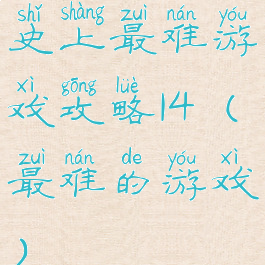 shǐ shàng zuì nán yóu
史上最难游
xì gōng lüè
戏攻略14（
zuì nán de yóu xì
最难的游戏
）